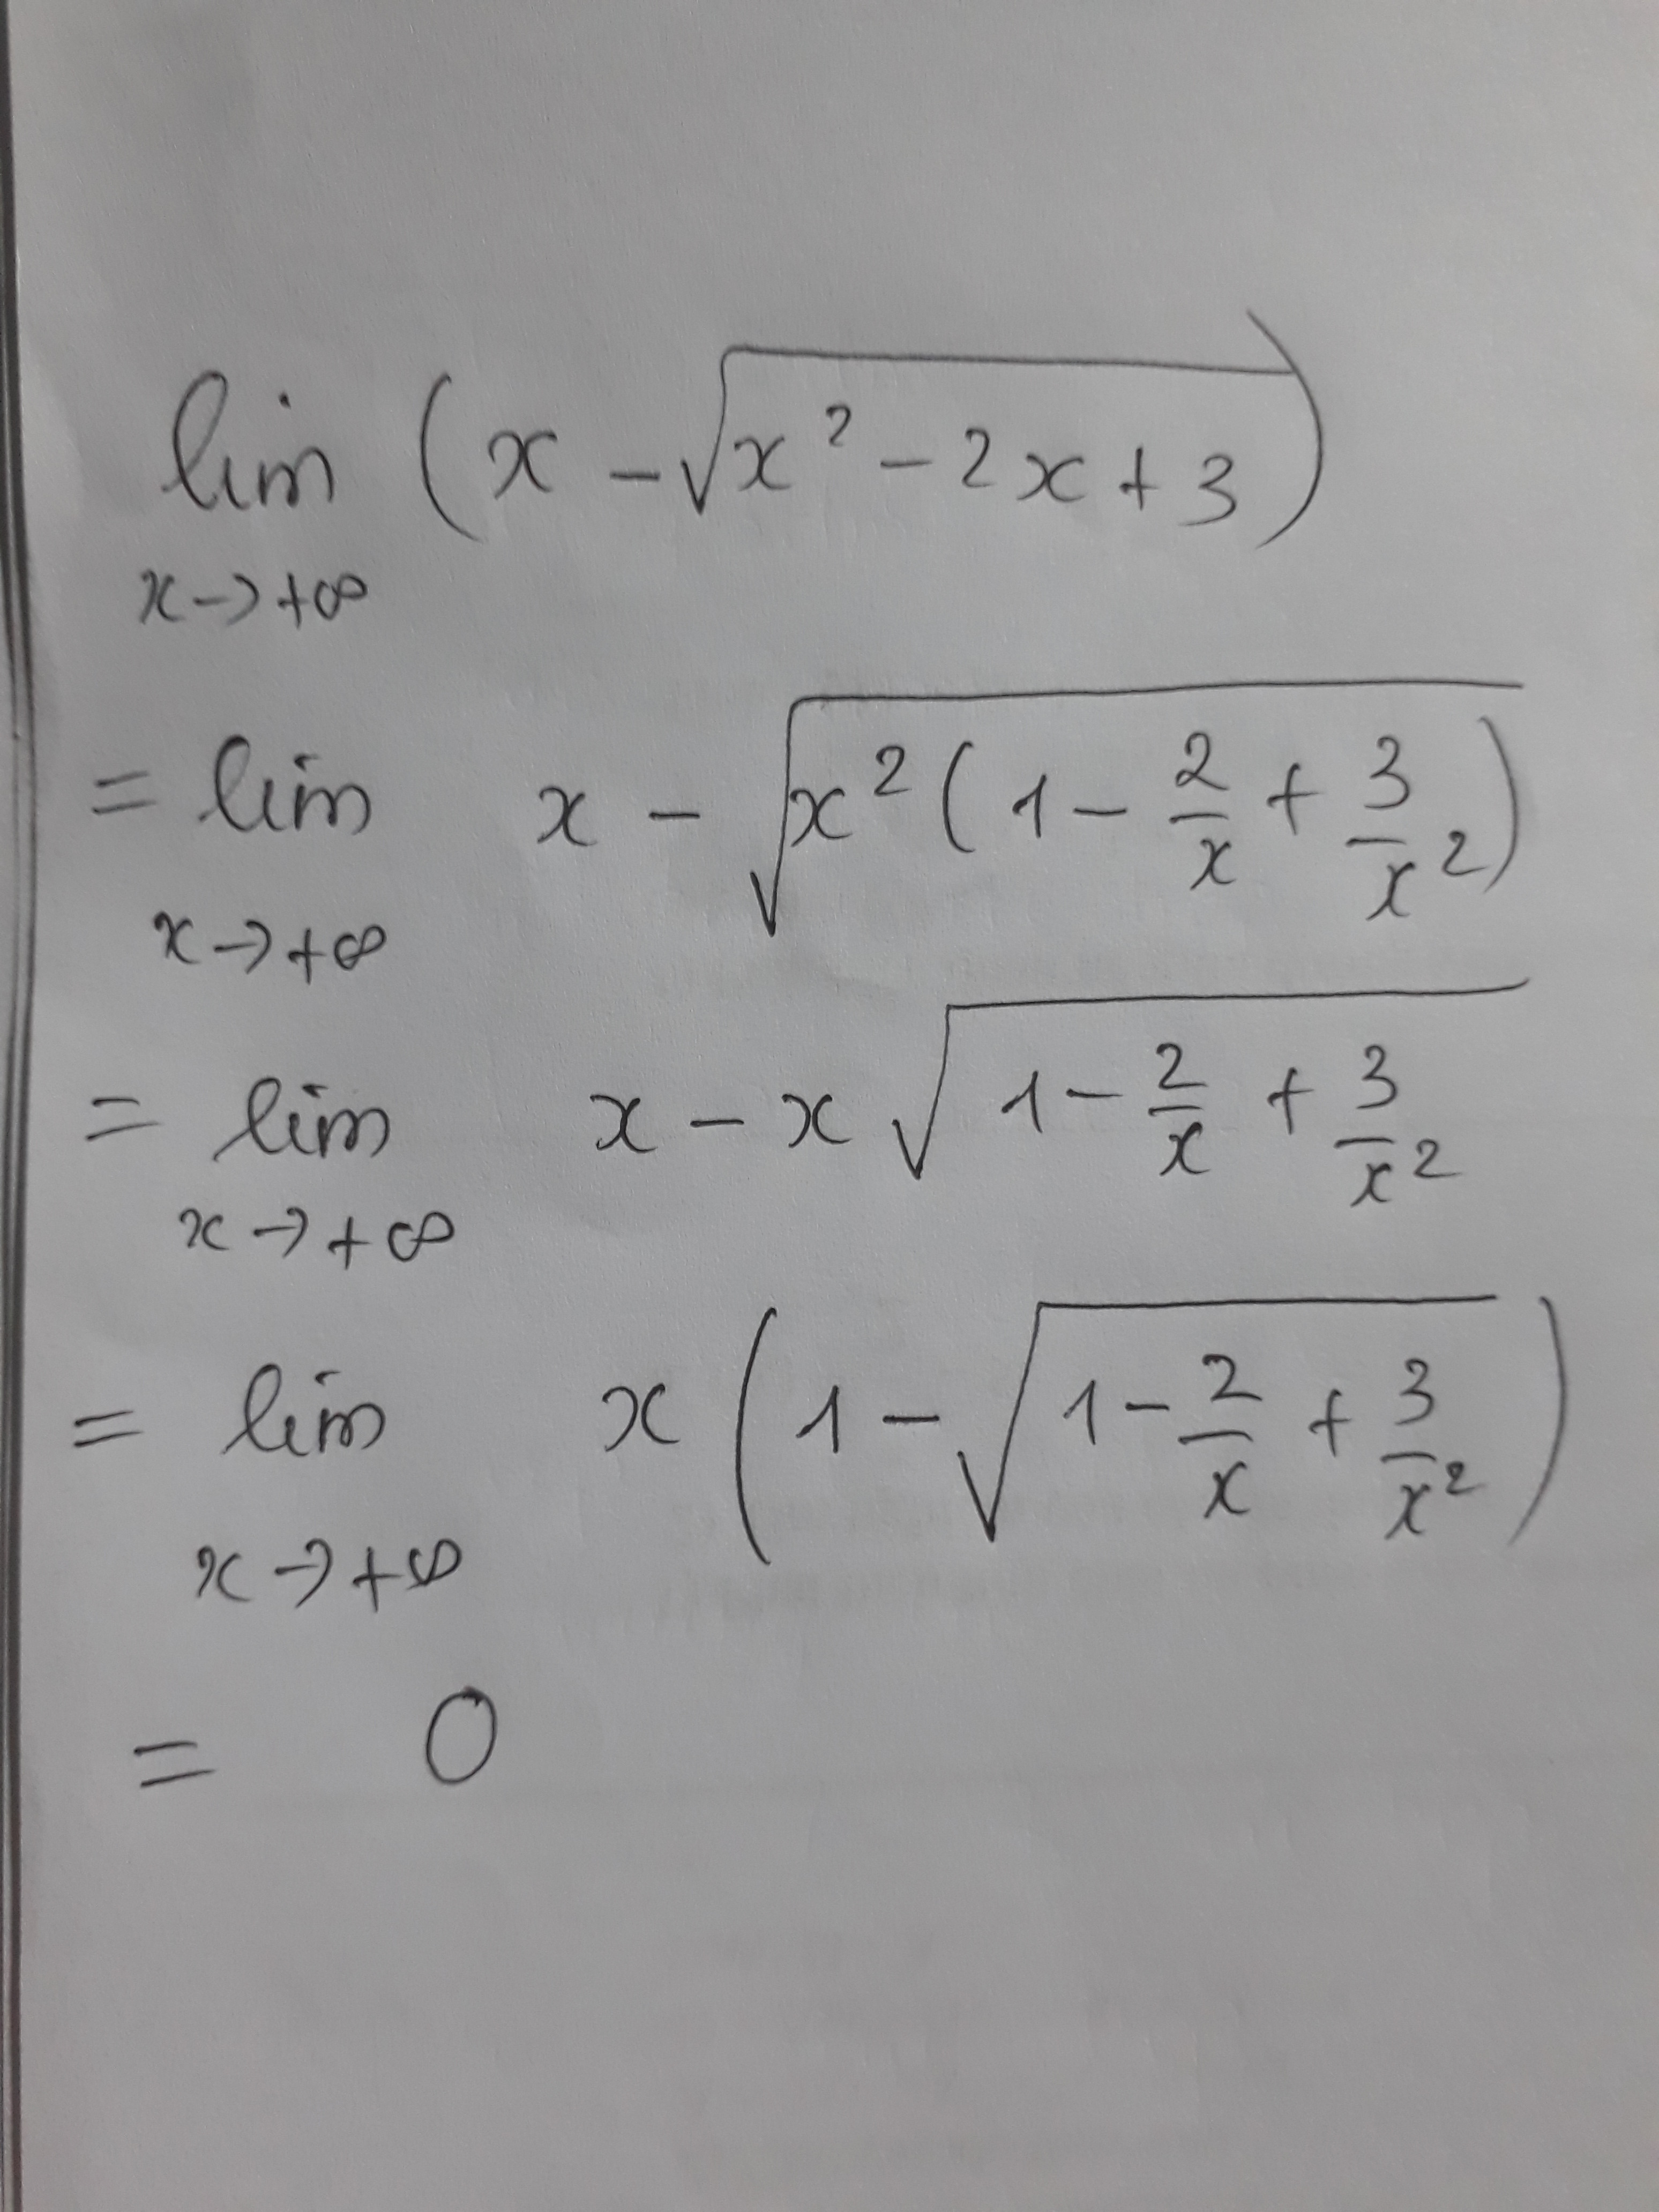 lim (x - √(x² - 2x + 3))
x → +∞
= lim x - √(x² (1 - 2/x + 3/x²))
x → +∞
= lim x - x √(1 - 2/x + 3/x²)
x → +∞
= lim x (1 - √(1 - 2/x + 3/x²))
x → +∞
= 0